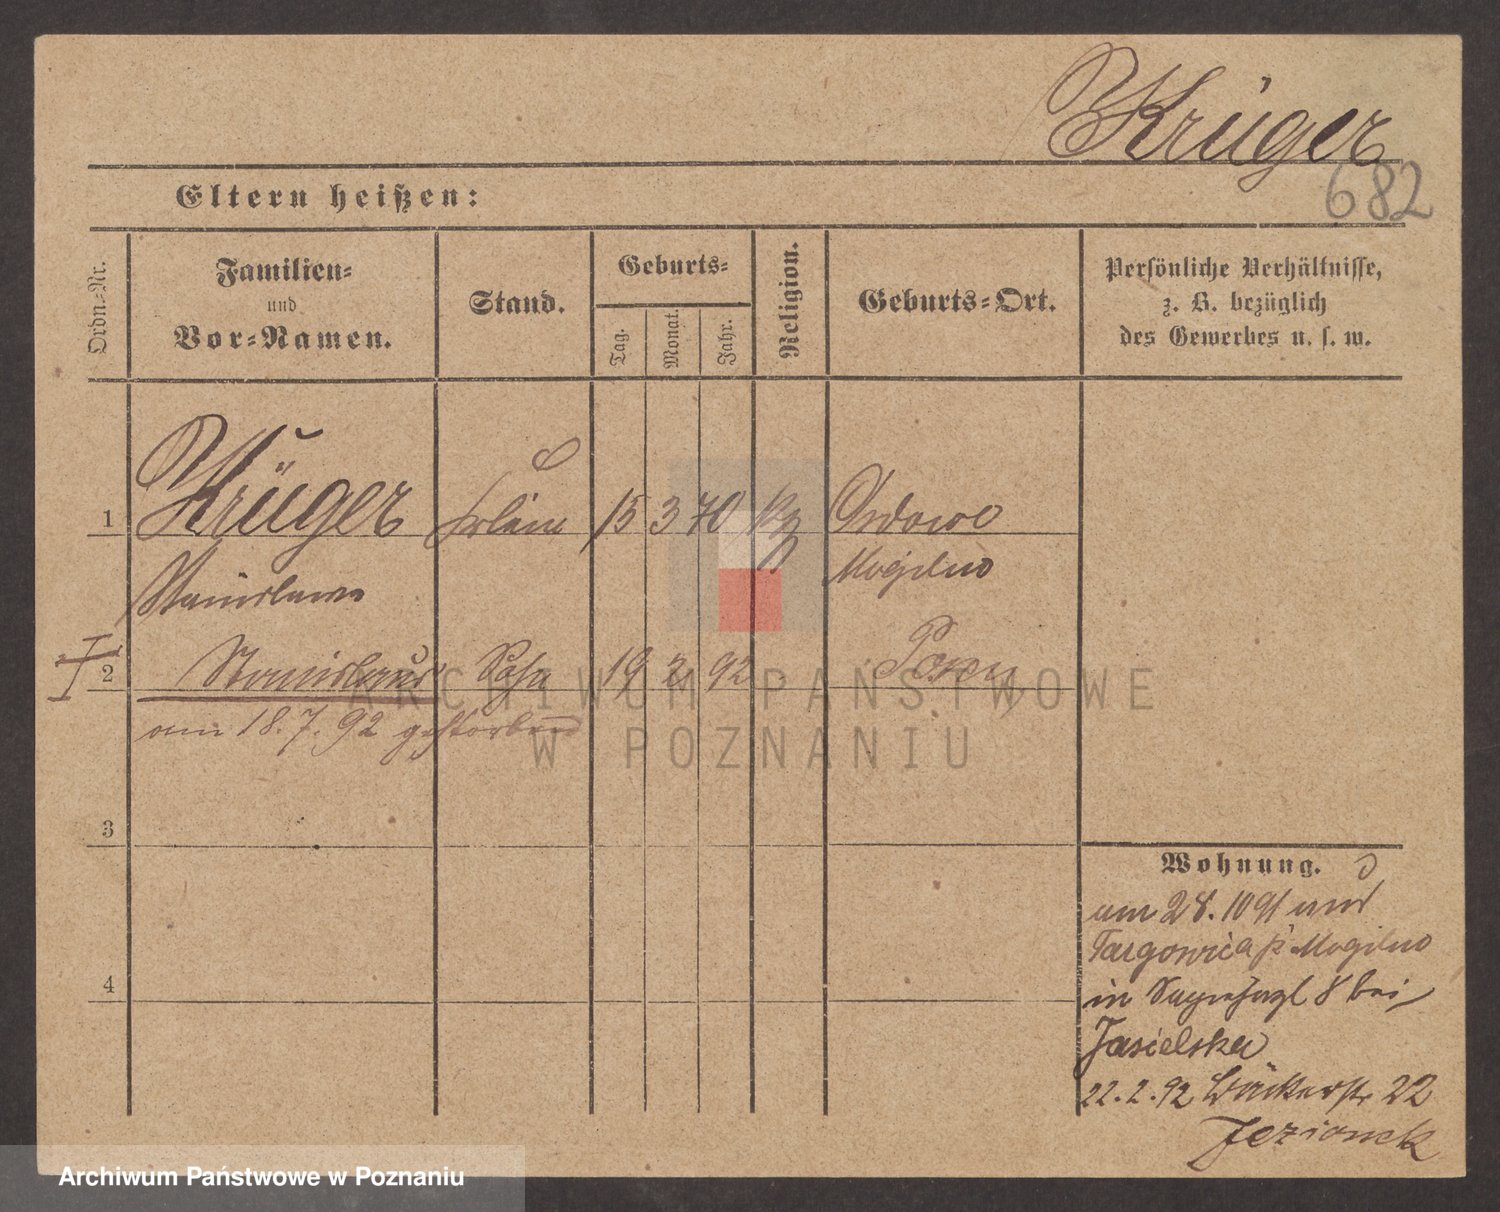 Krüger
682
Eltern heißen:
Ordn=Nr.
Familien=
und
Vor=Namen.
Stand.
Geburts=
Tag.
Monat.
Jahr.
Religion.
Geburts=Ort.
Persönliche Verhältnisse,
z. B. bezüglich
des Gewerbes u. s. w.
1 Krüger 15 3 70 Ordowo
Stanislawa Mogilno
2 Stanislaus Sohn 19 2 92 Posen
am 18.7.92 gestorben
3
4
Wohnung.
am 28.10 91 aus
Targowica b Mogilno
in 8 bei
Jasielska
22.2.92 Bäckerstr 22
Jezionek
ARCHIWUM PAŃSTWOWE
W POZNANIU
Archiwum Państwowe w Poznaniu